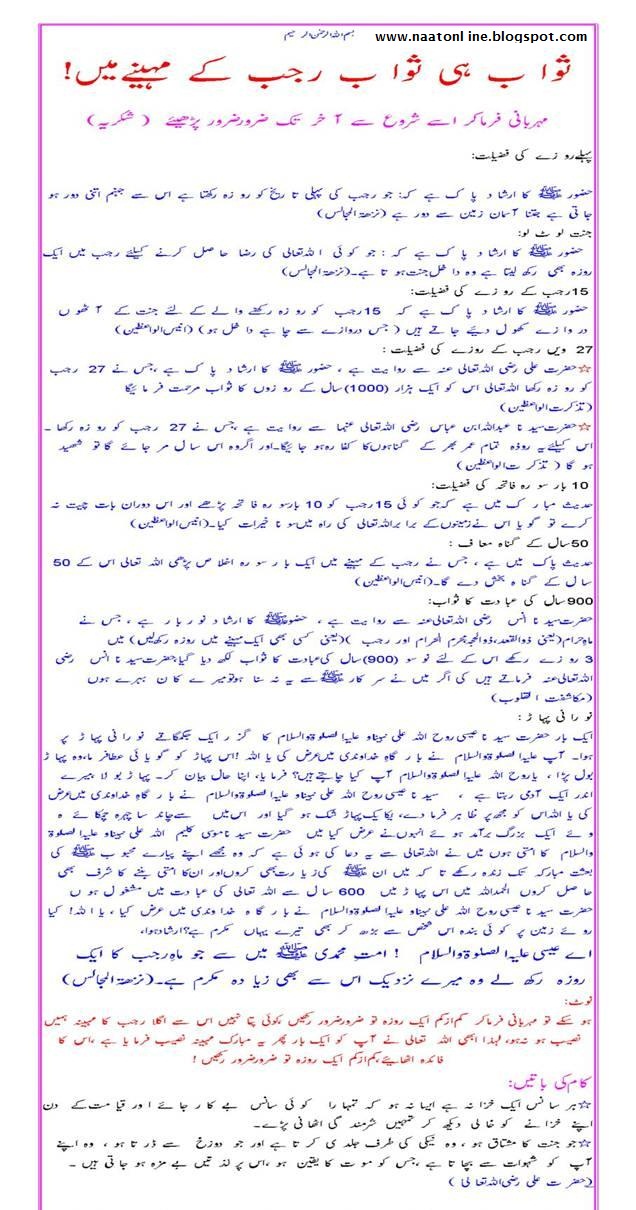 بسم اللہ الرحمٰن الرحیم
www.naatonline.blogspot.com
ثواب ہی ثواب رجب کے مہینے میں!
مہربانی فرماکر اسے شروع سے آخر تک ضرور ضرور پڑھیئے (شکریہ)
پہلے روزے کی فضیلت:
حضور ﷺ کا ارشاد پاک ہے کہ: جو رجب کی پہلی تاریخ کو روزہ رکھتا ہے اس سے جہنم اتنی دور ہو
جاتی ہے جتنا آسمان زمین سے دور ہے (نزھۃ المجالس)
جنت لوٹ لو:
حضور ﷺ کا ارشاد پاک ہے کہ: جو کوئی اللہ تعالی کی رضا حاصل کرنے کیلئے رجب میں ایک
روزہ بھی رکھ لیتا ہے وہ داخل جنت ہوتا ہے۔(نزھۃ المجالس)
15رجب کے روزے کی فضیلت:
حضور ﷺ کا ارشاد پاک ہے کہ 15رجب کو روزہ رکھنے والے کے لئے جنت کے آٹھوں
دروازے کھول دیئے جاتے ہیں (جس دروازے سے چاہے داخل ہو) (انیس الواعظین)
27 ویں رجب کے روزے کی فضیلت :
☆حضرت علی رضی اللہ تعالی عنہ سے روایت ہے ، حضور ﷺ کا ارشاد پاک ہے ،جس نے 27 رجب
کو روزہ رکھا اللہ تعالی اس کو ایک ہزار (1000)سال کے روزوں کا ثواب مرحمت فرمائیگا
(تذکرت الواعظین)
☆حضرت سیدنا عبداللہ ابن عباس رضی اللہ تعالی عنہما سے روایت ہے ،جس نے 27 رجب کو روزہ رکھا ۔
اس کیلئے یہ روذہ تمام عمر بھر کے گناہوں کا کفارہ ہو جائیگا۔اور اگر وہ اس سال مر جائے گا تو شھید
ہو گا (تذکرت الواعظین)
10 بار سورہ فاتحہ کی فضیلت:
حدیث مبارک میں ہے کہ جو کوئی 15رجب کو 10 بار سورہ فاتحہ پڑھے اور اس دوران بات چیت نہ
کرے تو گویا اس نے زمینوں کے برابر اللہ تعالی کی راہ میں سونا خیرات کیا۔(انیس الواعظین)
50سال کے گناہ معاف :
حدیث پاک میں ہے ، جس نے رجب کے مہینے میں ایک بار سورہ اخلاص پڑھی اللہ تعالی اس کے 50
سال کے گناہ بخش دے گا۔(انیس الواعظین)
900سال کی عبادت کا ثواب:
حضرت سیدنا انس رضی اللہ تعالی عنہ سے روایت ہے ، حضور ﷺ کا ارشاد نور بار ہے ، جس نے
ماہ حرام (یعنی ذوالقعد،ذوالحجہ،محرم الحرام اور رجب )(یعنی کسی بھی ایک مہینے میں روزہ رکھ لیں) میں
3 روزے رکھے اس کے لئے نو سو (900)سال کی عبادت کا ثواب لکھ دیا گیا،حضرت سیدنا انس رضی
اللہ تعالی عنہ فرماتے ہیں کی اگر میں نے سرکار ﷺ سے یہ نہ سنا ہو تو میرے کان بہرے ہوں
(مکاشفت القلوب)
نورانی پہاڑ :
ایک بار حضرت سیدنا عیسی روح اللہ علی نبیناو علیہ الصلوۃ والسلام کا گزر ایک جگمگاتے نورانی پہاڑ پر
ہوا۔ آپ علیہ الصلوۃ والسلام نے بارگاہ خداوندی میں عرض کی یا اللہ !اس پہاڑ کو گویائی عطا فرما،وہ پہاڑ
بول پڑا ، یا روح اللہ علیہ الصلوۃ والسلام آپ کیا چاہتے ہیں؟ فرمایا، اپنا حال بیان کر۔ پہاڑ بولا میرے
اندر ایک آدمی رہتا ہے ، سیدنا عیسی روح اللہ علی نبیناو علیہ الصلوۃ والسلام نے بارگاہ خداوندی میں عرض
کی یا اللہ اس کو مجھ پر ظاہر فرمادے، یکا یک پہاڑ شک ہو گیا اور اس میں سے چاند سا چہرہ چمکائے ہ
وئے ایک بزرگ برآمد ہوئے انہوں نے عرض کیا میں حضرت سیدنا موسی کلیم اللہ علی نبیناو علیہ الصلوۃ
والسلام کا امتی ہوں میں نے اللہ تعالی سے یہ دعا کی ہوئی ہے کہ وہ مجھے اپنے پیارے محبوب ﷺ کی
بعثت مبارکہ تک زندہ رکھے تاکہ میں ان ﷺ کی زیارت بھی کروں اور ان کا امتی بننے کا شرف بھی
حاصل کروں الحمد للہ میں اس پہاڑ میں 600 سال سے اللہ تعالی کی عبادت میں مشغول ہوں
حضرت سیدنا عیسی روح اللہ علی نبیناو علیہ الصلوۃ والسلام نے بارگاہ خداوندی میں عرض کیا ، یا اللہ! کیا
روئے زمین پر کوئی بندہ اس شخص سے بڑھ کر بھی تیرے یہاں مکرم ہے؟ارشاد ہوا،
اے عیسی علیہ الصلوۃ والسلام ! امت محمدی ﷺ میں سے جو ماہ رجب کا ایک
روزہ رکھ لے وہ میرے نزدیک اس سے بھی زیادہ مکرم ہے۔(نزھۃ المجالس)
نوٹ:
ہو سکے تو مہربانی فرماکر کم از کم ایک روزہ تو ضرور ضرور رکھیں ،کوئی پتا نہیں اس سے اگلا رجب کا مہینہ ہمیں
نصیب ہو نہ ہو، لہذا ابھی اللہ تعالی نے آپ کو ایک بار پھر یہ مبارک مہینہ نصیب فرمایا ہے ،اس کا
فائدہ اٹھایئے،کم از کم ایک روزہ تو ضرور ضرور رکھیں !
کام کی باتیں:
☆ہر سانس ایک خزانہ ہے ایسا نہ ہو کہ تمہارا کوئی سانس بے کار جائے اور قیامت کے دن
اپنے خزانے کو خالی دیکھ کر تمہیں شرمندگی اٹھانی پڑے۔
☆جو جنت کا مشتاق ہو ، وہ نیکی کی طرف جلدی کرتا ہے اور جو دوزخ سے ڈرتا ہو ، وہ اپنے
آپ کو شہوات سے بچاتا ہے ،جس کو موت کا یقین ہو ،اس پر لذتیں بے مزہ ہو جاتی ہیں ۔
(حضرت علی رضی اللہ تعالی )